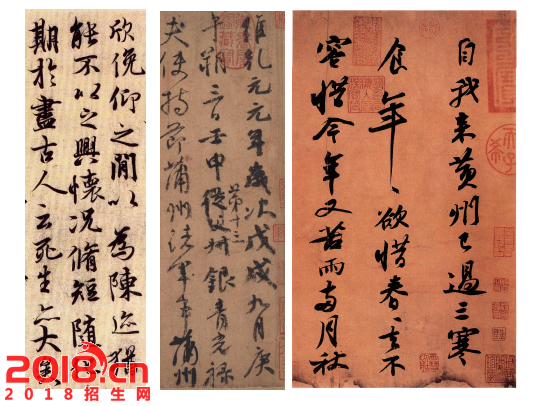 欣俛仰之閒以為陳迹猶
能不以之興懷況脩短隨化
期於盡古人云死生亦大矣
維乾元元年歲次戊戌九月庚
午朔三日壬申第十三從父叔銀青光祿
夫使持節蒲州諸軍事蒲州
自我來黃州已過三寒
食年〻欲惜春〻去不
容惜今年又苦雨兩月秋
2018.cn
2018招生网